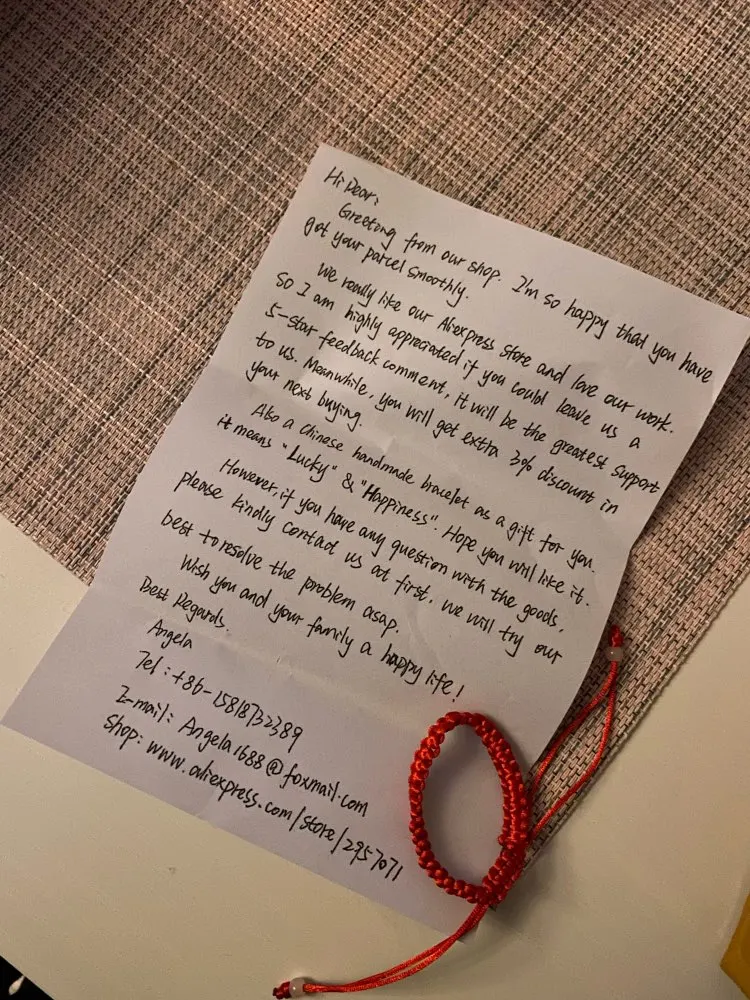 Hi Dear:
Greeting from our shop. I'm so happy that you have
got your parcel smoothly.
We really like our Aliexpress store and love our work.
So I am highly appreciated if you could leave us a
5-star feedback comment, it will be the greatest support
to us. Meanwhile, you will get extra 3% discount in
your next buying.
Also a Chinese handmade bracelet as a gift for you.
it means "Lucky" & "Happiness". Hope you will like it.
However, if you have any question with the goods.
please kindly contact us at first. we will try our
best to resolve the problem asap.
Wish you and your family a happy life!
Best Regards.
Angela
Tel: +86-15818732389
E-mail: Angela1688@foxmail.com
Shop: www.aliexpress.com/store/2957071